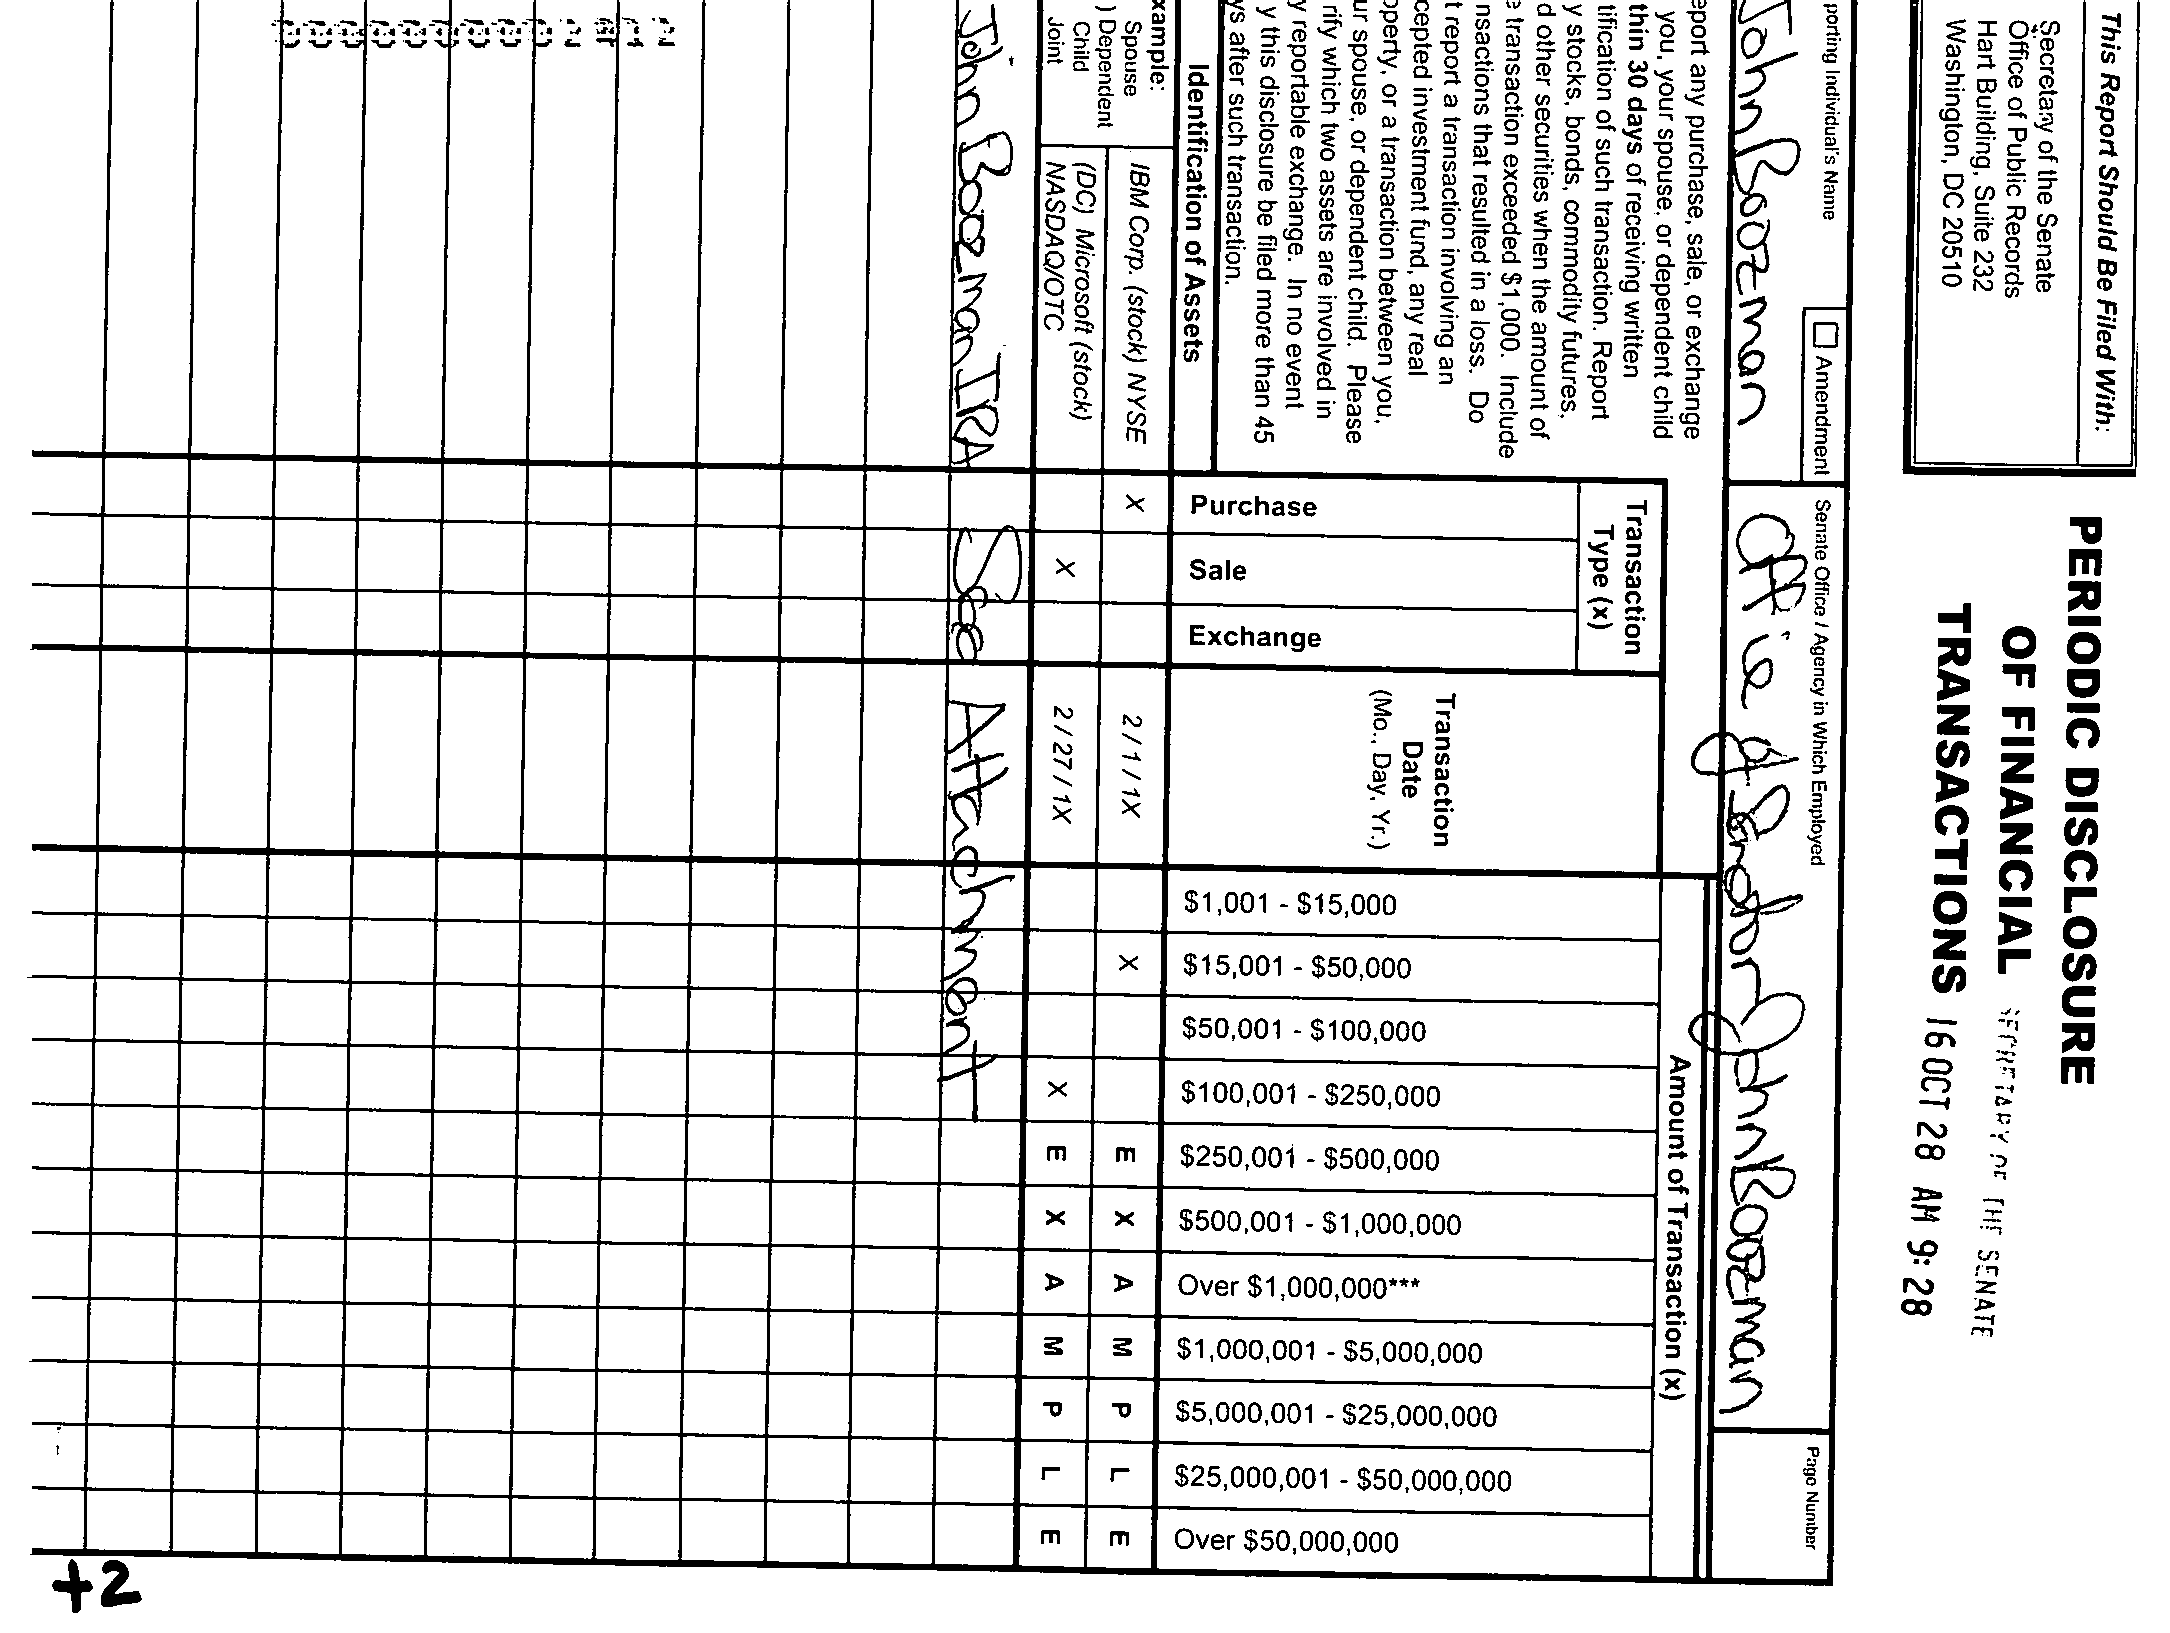 This Report Should Be Filed With:
Secretary of the Senate
Office of Public Records
Hart Building, Suite 232
Washington, DC 20510
PERIODIC DISCLOSURE
OF FINANCIAL
TRANSACTIONS
SECRETARY OF THE SENATE
16 OCT 28 AM 9:28
porting Individual's Name
Amendment
Senate Office / Agency in Which Employed
Page Number
John Boozman
Office of Senator John Boozman
eport any purchase, sale, or exchange
you, your spouse, or dependent child
thin 30 days of receiving written
tification of such transaction. Report
y stocks, bonds, commodity futures,
d other securities when the amount of
e transaction exceeded $1,000. Include
nsactions that resulted in a loss. Do
t report a transaction involving an
cepted investment fund, any real
operty, or a transaction between you,
ur spouse, or dependent child. Please
rify which two assets are involved in
y reportable exchange. In no event
y this disclosure be filed more than 45
ys after such transaction.
Identification of Assets
Transaction
Type (x)
Purchase
Sale
Exchange
Transaction
Date
(Mo., Day, Yr.)
Amount of Transaction (x)
$1,001 - $15,000
$15,001 - $50,000
$50,001 - $100,000
$100,001 - $250,000
$250,001 - $500,000
$500,001 - $1,000,000
Over $1,000,000***
$1,000,001 - $5,000,000
$5,000,001 - $25,000,000
$25,000,001 - $50,000,000
Over $50,000,000
xample:
Spouse
) Dependent
Child
Joint
IBM Corp. (stock) NYSE X 2 / 1 / 1X X E X A M P L E
(DC) Microsoft (stock)
NASDAQ/OTC X 2 / 27 / 1X X E X A M P L E
John Boozman IRA See Attachment
+2